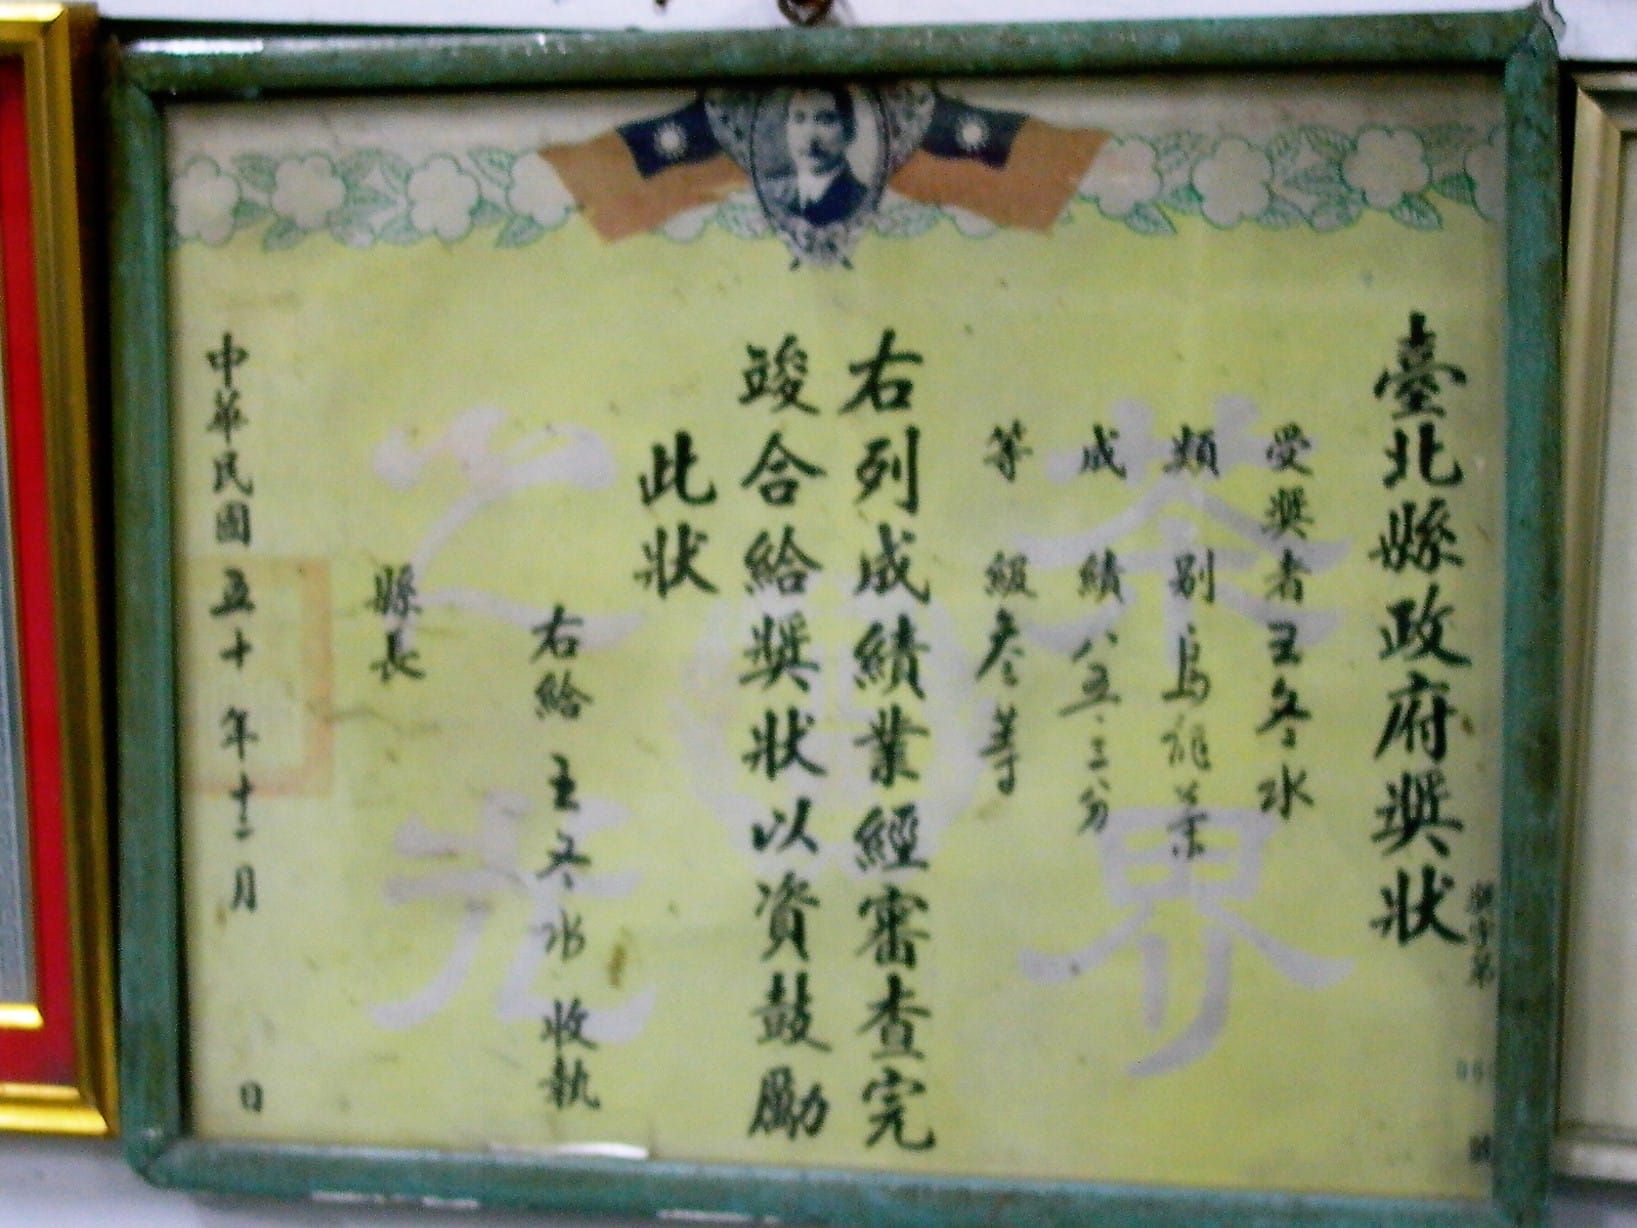 臺北縣政府獎狀
獎字第
受獎者王冬水
類別烏龍茶
成績八五.三分
等級叁等
右列成績業經審查完
竣合給獎狀以資鼓勵
此狀
右給 王冬水 收執
縣長
中華民國五十年十二月 日
茶界
之光